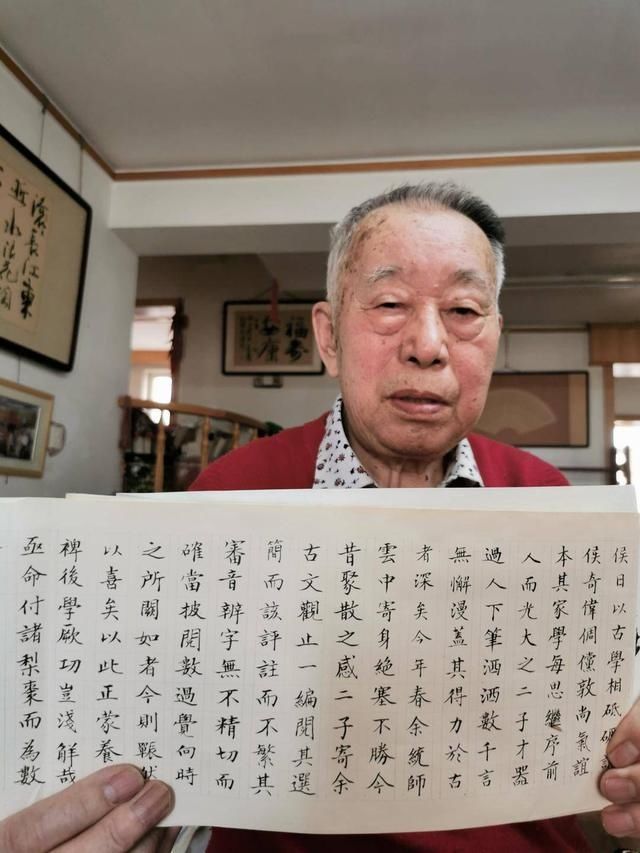 侯日以古學相砥礪
侯奇偉倜儻敦尚氣誼
本其家學每思繼序前
人而光大之二子才器
過人下筆洒洒數千言
無懈漫蓋其得力於古
者深矣今年春余統師
雲中寄身絕塞不勝今
昔聚散之感二子寄余
古文觀止一編閱其選
簡而該評註而不繁其
審音辨字無不精切而
確當披閱數過覺向時
之所闕如者今則囅然
以喜矣以此正蒙養
裨後學厥功豈淺鮮哉
亟命付諸梨棗而為數
福壽
安康
滚長江東
逝水浪花淘